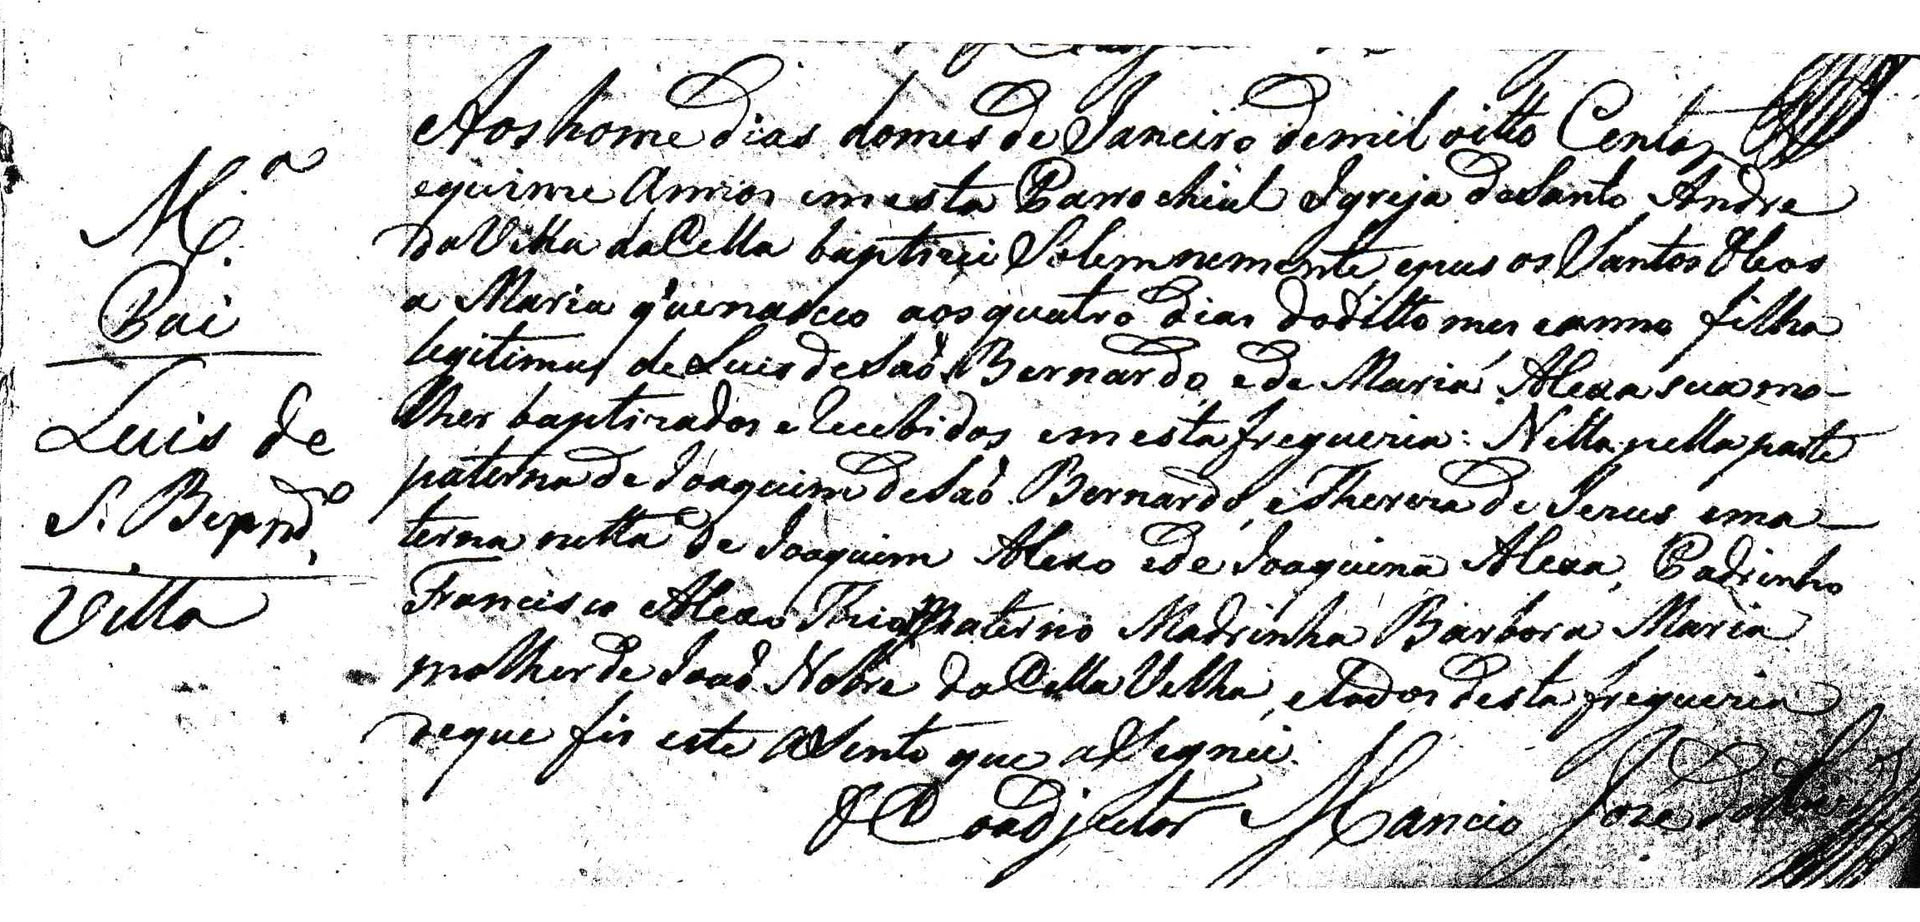 M.ª
Pai
Luis de
S. Bernd.º
Villa
Aos home dias domes de Janeiro demil oitto Centos
equinse Annos emesta Parrochial Igreja de Santo Andre
da Villa da Cella baptizei Solemnemente, epus os Santos Oleos
a Maria q'uenasceo aos quatro dias do ditto mes eanno filha
legitima de Luis de Saõ Bernardo, e de Maria Alexa sua mo-
lher baptizados e recebidos emesta freguezia: Netta pella parte
paterna de Joaquim de Saõ Bernardo, e Thereza de Jezus ema-
terna netta de Joaquim Alexo e de Joaquina Alexa, Padrinho
Francisco Alexo Thio Materno Madrinha Barbora Maria
molher de Joaõ Nobre da Cella Velha, e todos desta freguezia
deque fis este aSento que aSignei.
O Coadjutor Mancio José